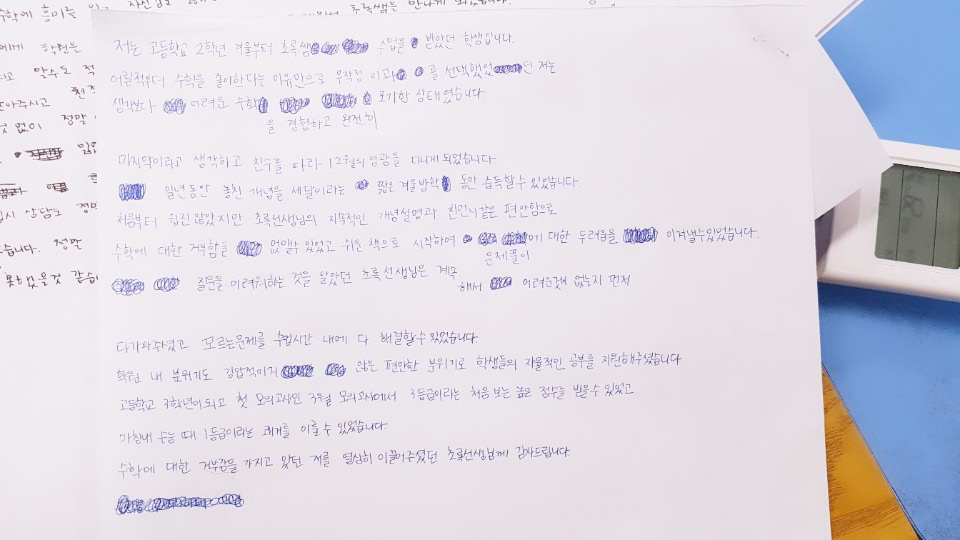 수학에 흥미를
에게 학원은
저는 고등학교 2학년 겨울부터 초록쌤 수업을 받았던 학생입니다.
어릴적부터 수학을 좋아한다는 이유만으로 무작정 이과를 선택했었던 저는
생각보다 어려운 수학을 경험하고 완전히 포기한 상태였습니다
마지막이라고 생각하고 친구를 따라 12월에 영광을 다니게 되었습니다
일년동안 놓친 개념을 세달이라는 짧은 겨울방학 동안 습득할 수 있었습니다.
처음부터 쉽진 않았지만 초록선생님의 지속적인 개념설명과 친언니같은 편안함으로
수학에 대한 거부함을 없앨수 있었고 쉬운 책으로 시작하여 문제풀이에 대한 두려움을 이겨낼수있었습니다.
질문을 어려워하는 것을 알았던 초록선생님은 계속해서 어려운것은 없는지 먼저
다가와주셨고 모르는문제를 수업시간 내에 다 해결할 수 있었습니다
학원 내 분위기도 강압적이지 않은 편안한 분위기로 학생들의 자율적인 공부를 지원해주셨습니다
고등학교 3학년이되고 첫 모의고사인 3월 모의고사에서 3등급이라는 처음 보는 높은 점수를 받을 수 있었고
마침내 수능 때 1등급이라는 쾌거를 이룰 수 있었습니다
수학에 대한 거부감을 가지고 있던 저를 열심히 이끌어주셨던 초록선생님께 감사드립니다